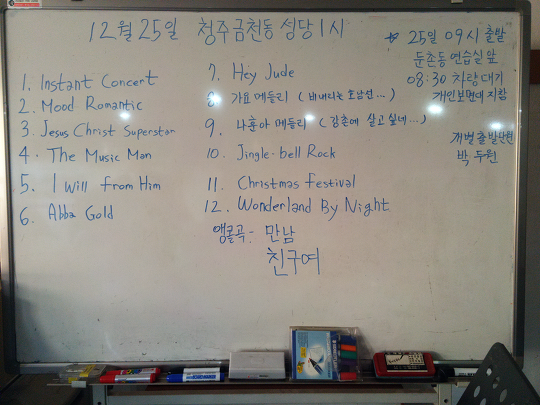 12월 25일 청주금천동성당 1시
1. Instant Concert
2. Mood Romantic
3. Jesus Christ Superstar
4. The Music Man
5. I Will from Him
6. Abba Gold
7. Hey Jude
8. 가요메들리 (비내리는 호남선...)
9. 나훈아 메들리 (강촌에 살고싶네...)
10. Jingle-bell Rock
11. Christmas Festival
12. Wonderland By Night
앵콜곡: 만남
친구여
25일 09시 출발
둔촌동 연습실 앞
08:30 차량대기
개인보면대 지참
개별출발
박두원